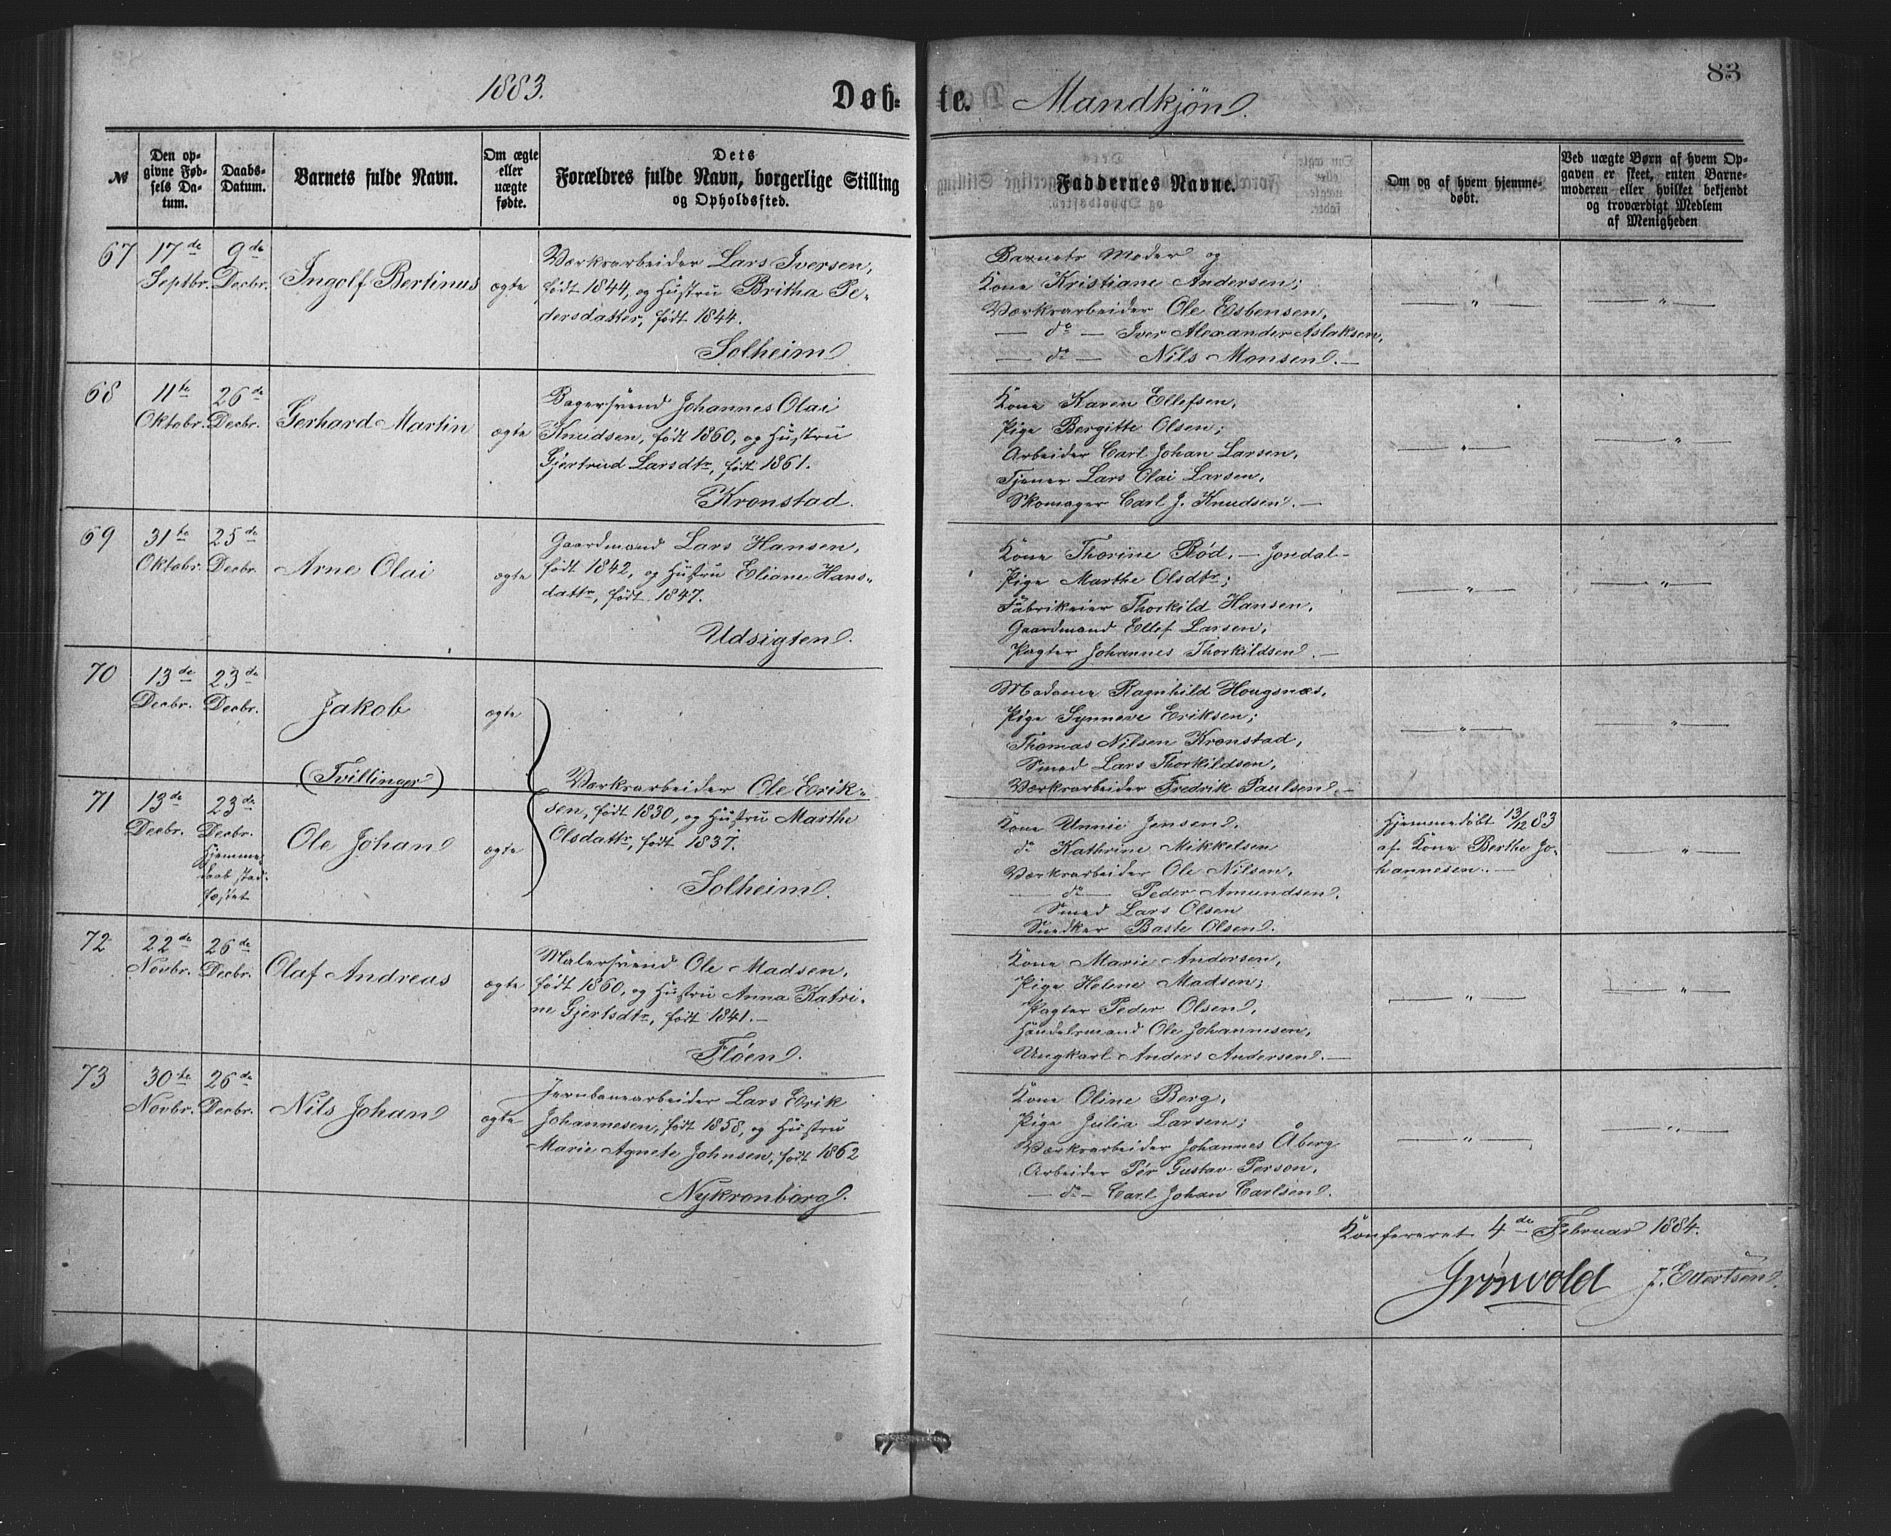 1883.
Døb-
te.
Mandkjøn.
83
№
Den op-
givne Fød-
sels Da-
tum.
Daabs-
Datum.
Barnets fulde Navn.
Om ægte
eller
uægte
fødte.
Dets
Forældres fulde Navn, borgerlige Stilling
og Opholdssted.
Faddernes Navne.
Om og af hvem hjemme-
døbt.
Ved uægte Børn af hvem Op-
gaven er skeet, enten Barne-
moderen eller hvilket bekjendt
og troværdigt Medlem
af Menigheden
67
17de
Septbr.
9de
Decbr.
Ingolf Bertinus
ægte
Værksarbeider Lars Iversen,
født 1844, og Hustru Britha Pe-
dersdatter, født 1844.
Solheim
Barnets Moder og
Kone Kristiane Andersen;
Værksarbeider Ole Esbensen,
— do — Iver Alexander Aslaksen,
— do — Nils Monsen. —
— " —
— " —
68
11te
Oktobr.
26de
Decbr.
Gerhard Martin
ægte
Bagersvend Johannes Olai
Knudsen, født 1860, og Hustru
Gjertrud Larsdtr, født 1861.
Kronstad.
Kone Karen Ellefsen,
Pige Bergitte Olsen;
Arbeider Carl Johan Larsen,
Tjener Lars Olai Larsen,
Skomager Carl J. Knudsen. —
— " —
— " —
69
31te
Oktobr.
25de
Decbr.
Arne Olai
ægte
Gaardmand Lars Hansen,
født 1842, og Hustru Eliane Hans-
dattr, født 1847.
Udsigten.
Kone Thorine Rød, — Jondal —
Pige Marthe Olsdtr;
Fabrikeier Thorkild Hansen,
Gaardmand Ellef Larsen,
Pagter Johannes Thorkildsen. —
— " —
— " —
70
13de
Decbr.
23de
Decbr.
Jakob
ægte
(Tvillinger)
Madame Ragnhild Hougsnæs,
Pige Synneve Eriksen;
Thomas Nilsen Kronstad,
Smed Lars Thorkildsen,
Værksarbeider Fredrik Paulsen. —
— " —
— " —
71
13de
Decbr.
23de
Decbr.
Hjemme-
daab stad-
fæstet
Ole Johan
ægte
Værksarbeider Ole Erik-
sen, født 1830, og Hustru Marthe
Olsdattr, født 1837.
Solheim.
Kone Unnie Jensen,
do Kathrine Mikkelsen
Værksarbeider Ole Nilsen,
— do — Peder Amundsen,
Smed Lars Olsen
Snedker Baste Olsen.
Hjemmedøbt 13/12 83
af Kone Berthe Jo-
hannesen. —
— " —
72
22de
Novbr.
26de
Decbr.
Olaf Andreas
ægte
Malersvend Ole Madsen,
født 1860, og Hustru Anna Katri-
ne Gjertsdtr, født 1841. —
Fløen.
Kone Marie Andersen,
Pige Helene Madsen;
Pagter Peder Olsen,
Handelsmand Ole Johannesen,
Ungkarl Anders Andersen. —
— " —
— " —
73
30te
Novbr.
26de
Decbr.
Nils Johan
ægte
Jernbanearbeider Lars Erik
Johannesen, født 1858, og Hustru
Marie Agnete Johnsen, født 1862
Nykronborg.
Kone Oline Berg,
Pige Julia Larsen;
Værksarbeider Johannes Åberg
Arbeider Per Gustav Person,
— do — Carl Johan Carlsen.
— " —
— " —
Konfereret 4de Februar 1884.
Grønvold J. Ellertsen.